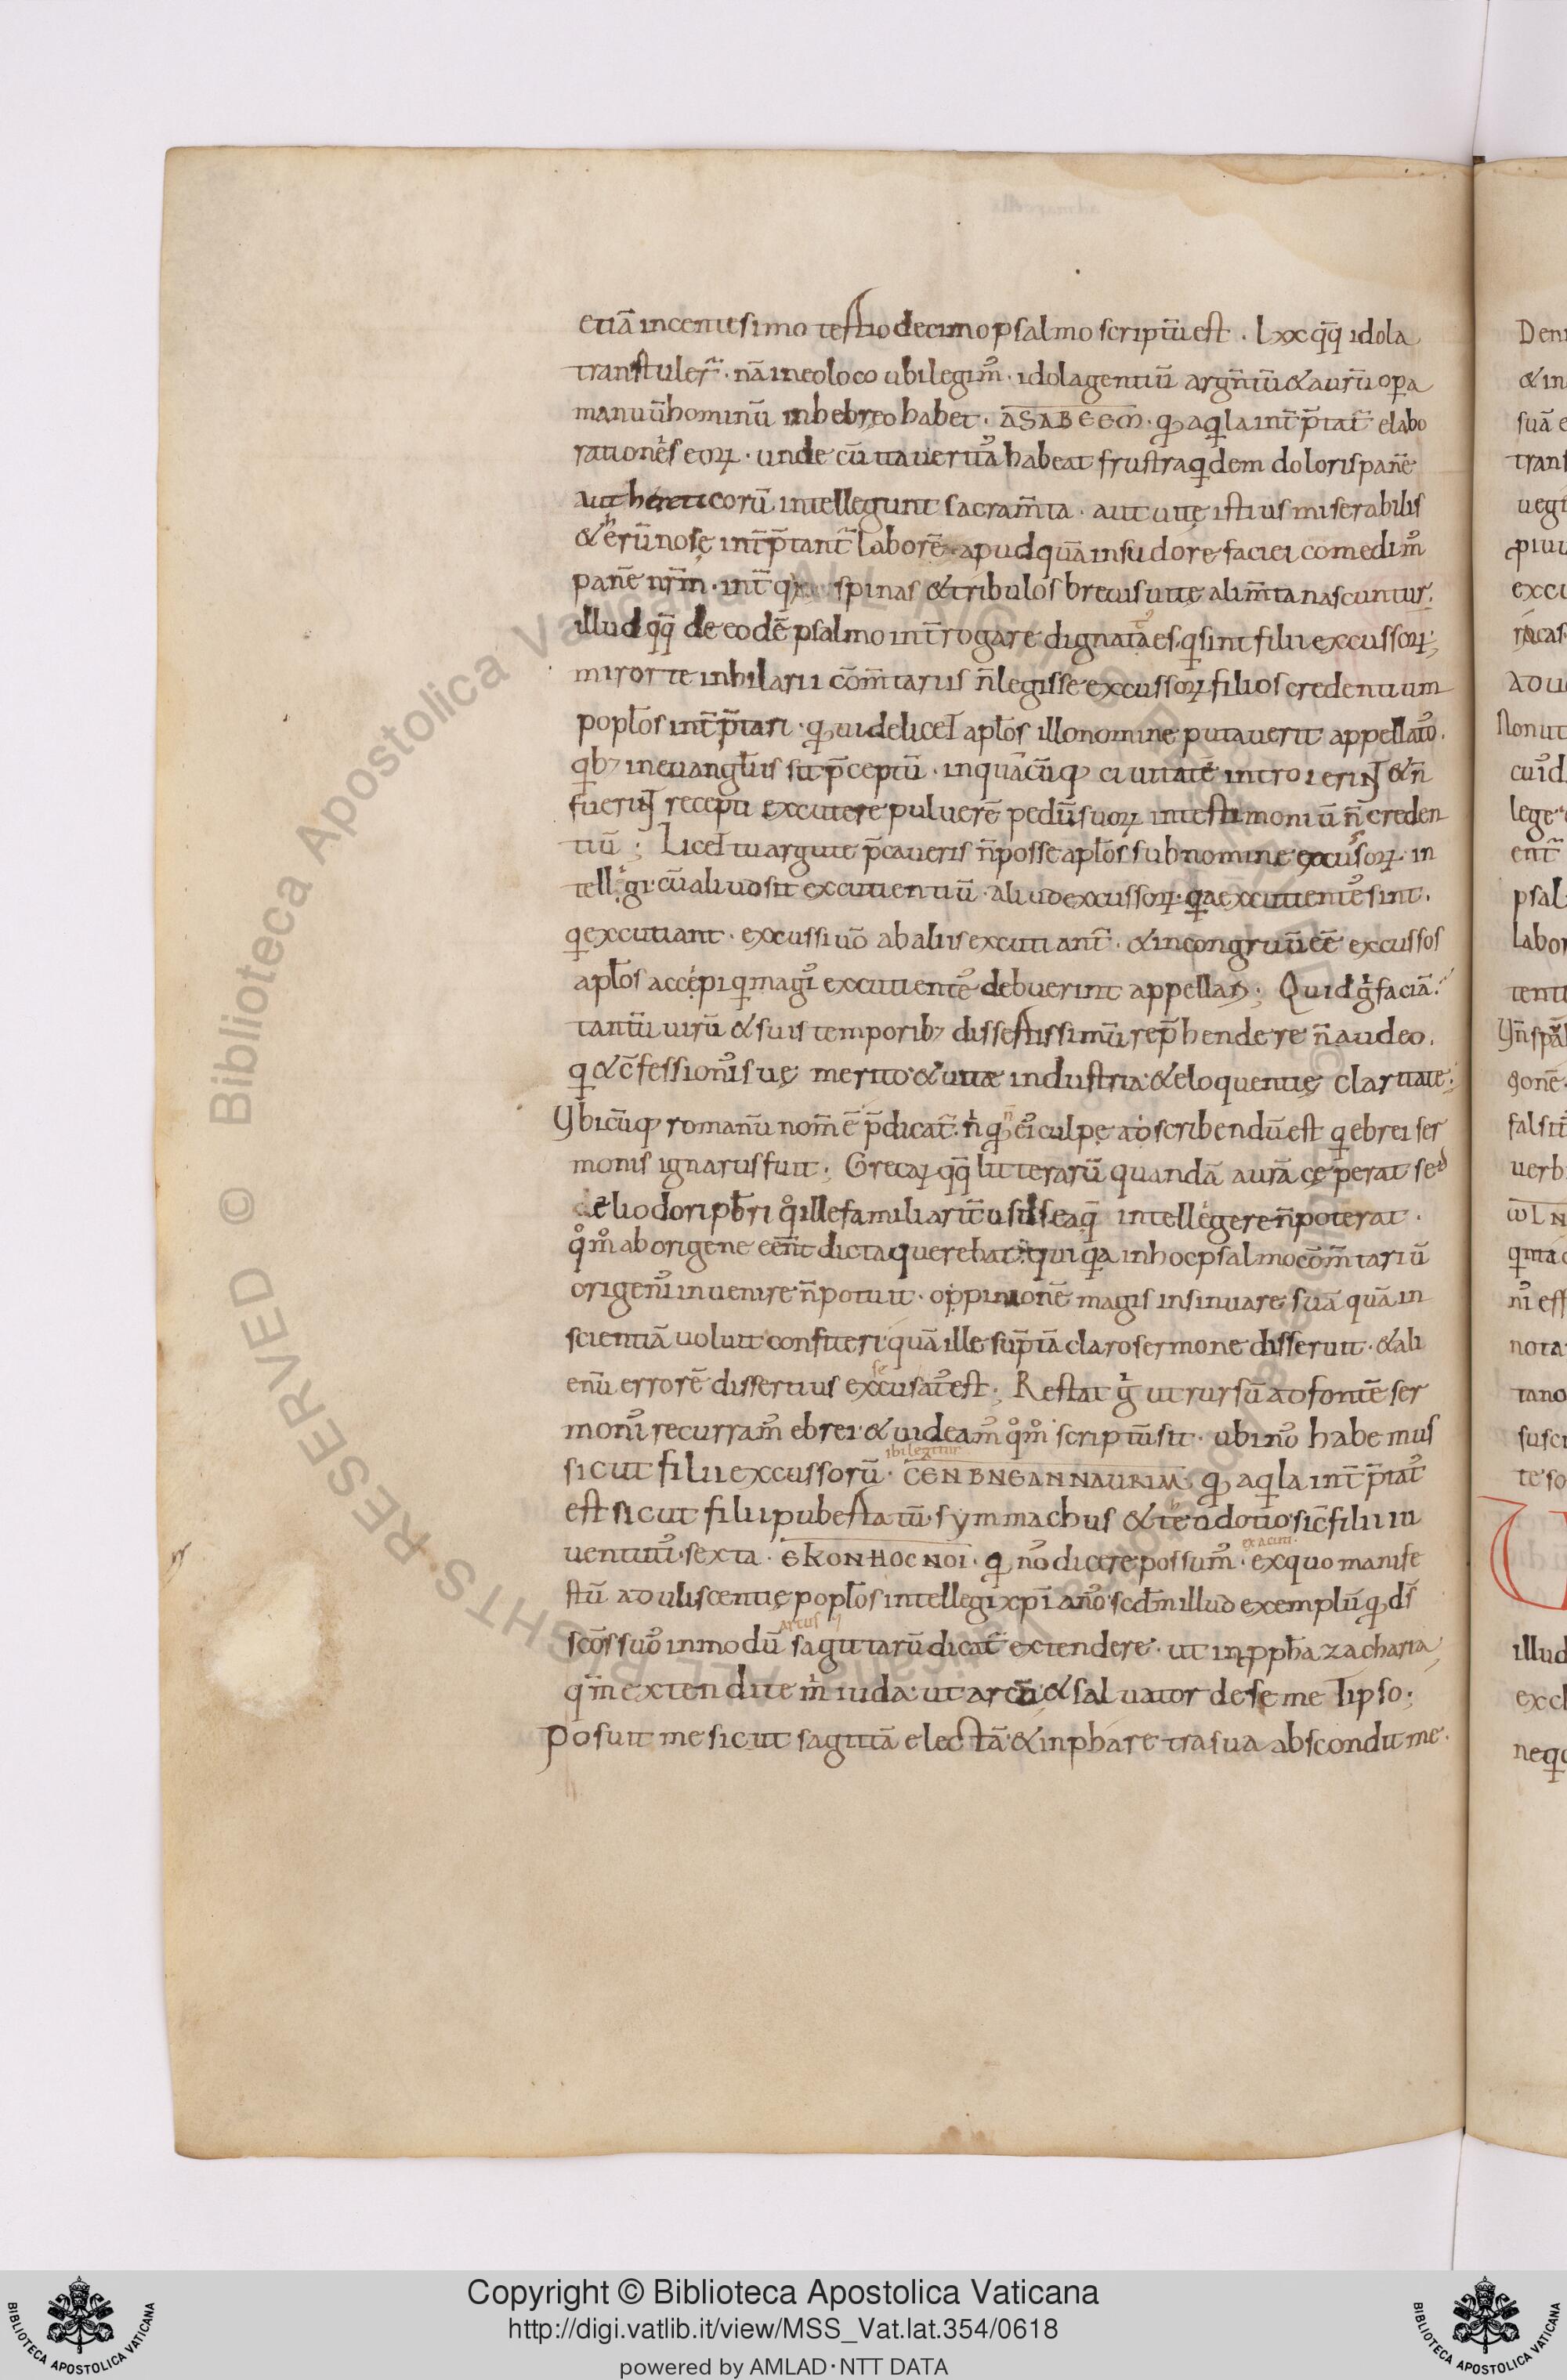 etiā incentesimo tertiodecimo psalmo scriptū est . Lxx qq̄ idola
transtuler̄ . nā ineoloco ubi legim̄ . idola gentiū argn̄tū & aurū opa
manuū hominū inhebreo habet . ASABEEM . qđ aqila int̄p̄tat̄ elabo
rationes eoꝝ . unde cū ita ueritas habeat frustra qdem doloris panē
aut hereticorū intellegunt sacram̄ta . aut uitę istius miserabilis
& erūnosę int̄p̄tant̄ laborē apud quā insudore faciei comedim᷒
panē nr̄m . int̄ q spinas & tribulos breuis uitę alim̄ta nascuntur .
illud qq̄ de eodē psalmo int̄rogare dignata es . q sint filii excussoꝝ ;
miror te inhilarii cōm̄tariis n̄ legisse excussoꝝ filios credentium
popl̄os int̄p̄tari . qđ uidelicet apl̄os illo nomine putauerit appellatos .
qb; ineuangl̄iis sit p̄ceptū . inquācūq; ciuitatē introierint & n̄
fuerint recepti excutere puluerē pedū suoꝝ intestimoniū n̄ creden
tiū ; Licet tu argute p̄caueris n̄ posse apl̄os sub nomine excusoꝝ in
tellegi . cū aliud sit excutientiū . aliud excussoꝝ . qa excutientes sint .
q excutiant . excussi uō ab aliis excutiant̄ . & incongruū eē excussos
apl̄os accepi q magis excutientes debuerint appellari ; Quid g̊ faciā .
tantū uirū & suis temporib; dissertissimū rep̄hendere n̄ audeo .
q & c̄fessionis suę merito & uitæ industria & eloquentię claritate .
Ybicūq; romanū nom̄ ē p̄dicat̄ . n qđ ei culpę adscribendū est q ebrei ser
monis ignarus fuit ; Grecaꝝ qq̄ litterarū quandā aurā cęperat sed
eliodori pb̄ri q ille familiarit̄ usus ea q̄ intellegere n̄ poterat .
qm̊ ab origene eent̄ dicta querebat qui qa inhoc psalmo cōm̄tariū
origenis inuenire n̄ potuit . oppinionē magis insinuare suā quā in
scientiā uoluit confiteri quā ille sūptā claro sermone disseruit . & ali
enū errorē dissertius excusat᷒ est ; Restat g̊ ut rursū ad fontē ser
monis recurram᷒ ebrei & uideam᷒ qm̊ scriptū sit . ubi nos habemus
ibi legitur
sicut filii excussorū . CEN BNEANNAURIM qđ aqila int̄p̄tat᷒
est sicut filii pubertatū . symmachus & teodotio . sic filii iu
uentutis . sexta . EKONHOC NOI . qđ nos dicere possum᷒ . ex quo manife
stū aduliscentię popl̄os intellegi xp̄iānos . scdm̄ illud exemplū qđ ds̄
arcus
scos suos in modū sagittarū dicat̄ extendere . ut inpph̄a zacharia
qm̄ extendi te m iuda ut arcū & saluator de semet ipso ;
Posuit me sicut sagittā electā & in pharetra sua abscondit me .
Copyright © Biblioteca Apostolica Vaticana
http://digi.vatlib.it/view/MSS_Vat.lat.354/0618
powered by AMLAD·NTT DATA